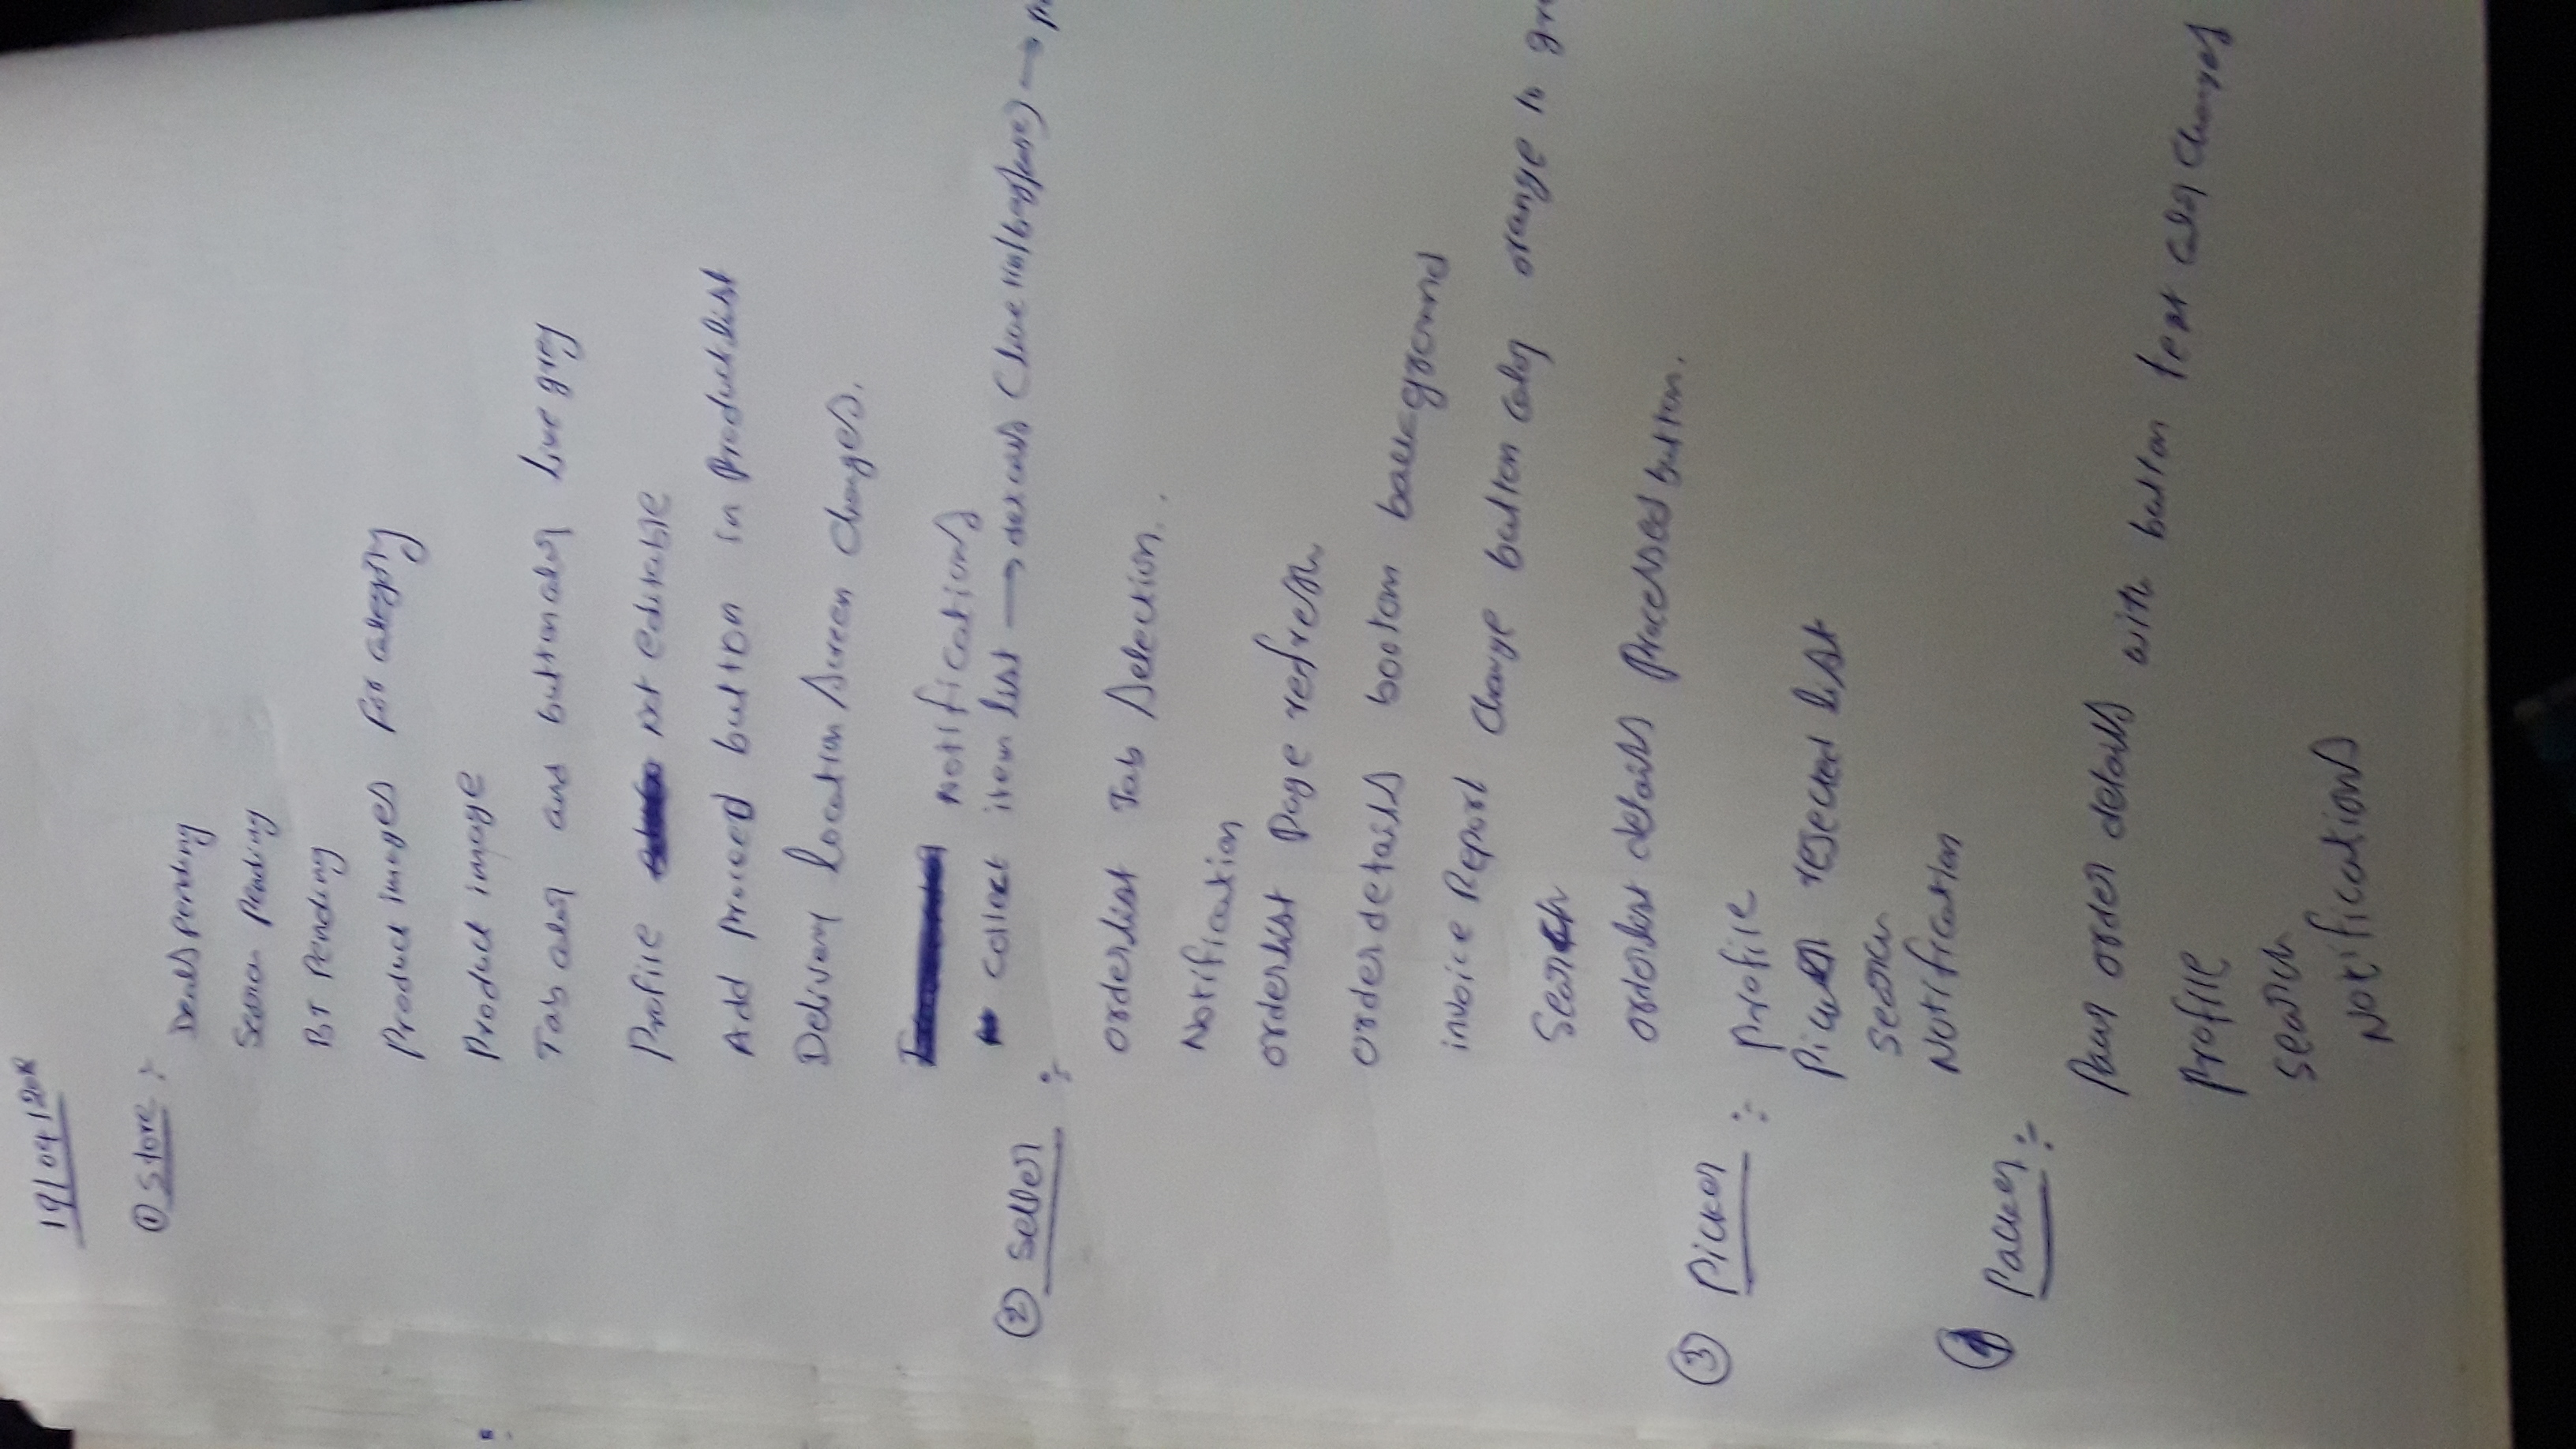 19/04/2018
① Store :-
Deals pending
Search pending
BT Pending
Product images for category
Product image
Tab color and button color like grey
Profile not editable
Add proceed button in Product list
Delivery location screen changes.
Notifications
collect item list → (like tin/bag/case) →
② Seller :-
orderlist Tab selection.
Notification
orderlist page refresh
order details bootom background
invoice Report change button color orange to
Search
orderlist details processed button.
③ Picker :- profile
Picker rejected list
search
Notification
④ Packer :-
order details with button text color changes
profile
search
Notifications